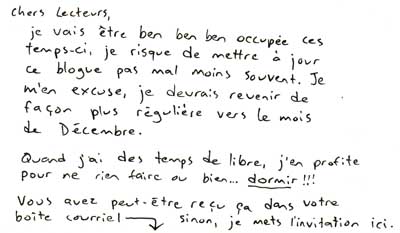 Chers Lecteurs,
je vais être ben ben ben occupée ces
temps-ci, je risque de mettre à jour
ce blogue pas mal moins souvent. Je
m'en excuse, je devrais revenir de
façon plus régulière vers le mois
de Décembre.
Quand j'ai des temps de libre, j'en profite
pour ne rien faire ou bien... dormir!!!
Vous avez peut-être reçu ça dans votre
boîte courriel sinon, je mets l'invitation ici.